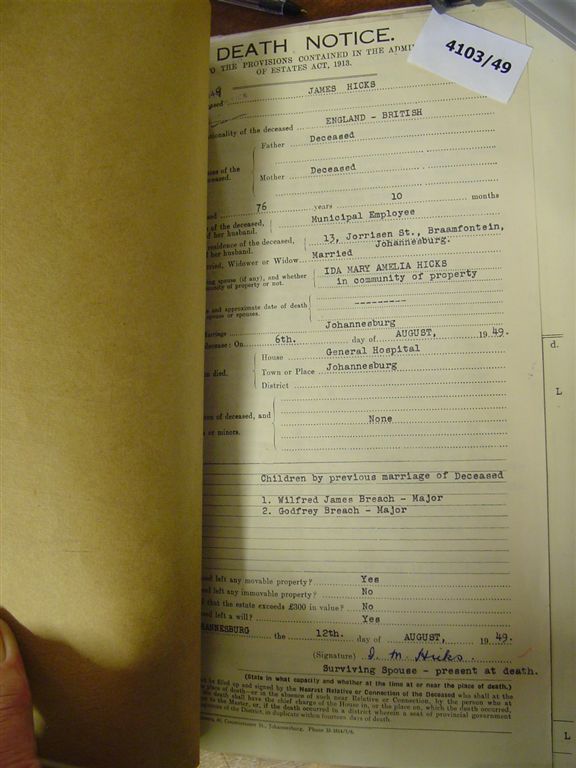 4103/49
DEATH NOTICE.
TO THE PROVISIONS CONTAINED IN THE ADMI
OF ESTATES ACT, 1913.
JAMES HICKS
ationality of the deceased ENGLAND - BRITISH
Father Deceased
mes of the
ceased.
Mother Deceased
76 years 10 months
of the deceased, Municipal Employee
her husband.
residence of the deceased, 13, Jorrisen St., Braamfontein,
her husband. Johannesburg.
rried, Widower or Widow Married
ing spouse (if any), and whether IDA MARY AMELIA HICKS
munity of property or not. in community of property
and approximate date of death ---------
spouse or spouses.
arriage Johannesburg
decease: On 6th. day of AUGUST, 1949.
House General Hospital
n died. Town or Place Johannesburg
District
of deceased, and None
or minors.
Children by previous marriage of Deceased
1. Wilfred James Breach - Major
2. Godfrey Breach - Major
sed left any movable property? Yes
sed left any immovable property? No
that the estate exceeds £300 in value? No
sed left a will? Yes
HANNESBURG the 12th. day of AUGUST, 1949.
(Signature) I. M. Hicks.
Surviving Spouse - present at death.
(State in what capacity and whether at the time at or near the place of death.)
be filled up and signed by the Nearest Relative or Connection of the Deceased who shall at the
place of death—or in the absence of such near Relative or Connection, by the person who at
the death shall have the chief charge of the House in, or the place on, which the death occurred,
to the Master, or, if the death occurred in a district wherein a seat of provincial government
of the District, in duplicate within fourteen days of death.
Commissioner St., Johannesburg. Phone
d.
L
L